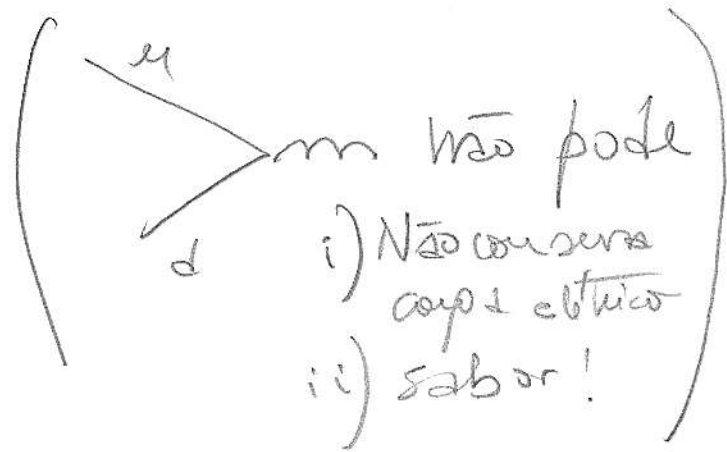 u
não pode
d
i) Não conserva
carga elétrica
ii) sabor!